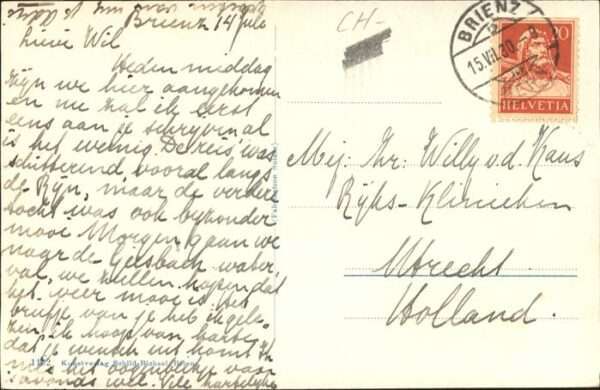 Brienz 14 Juli
Lieve Wil
Heden middag
zijn we hier aangekomen
en nu zal ik eerst
eens aan je schrijven al
is het weinig. De reis was
schitterend, vooral langs
de Rijn, maar de verdere
tocht was ook bijzonder
mooi. Morgen gaan we
naar de Geisbach water,
val, we willen hopen dat
het weer mooi is. Het
briefje van je heb ik gele-
zen, ik hoop van harte
dat je wensen uit komt. Ik
heb het
s avonds wel. Vele hartelijke
CH-
BRIENZ
15.VII.30.
20
HELVETIA
Mej: Zr: Willy v.d. Kaus
Rijks-Klinieken
Utrecht
Holland.
1152 Kunstverlag Schild-Bichsel, Brienz